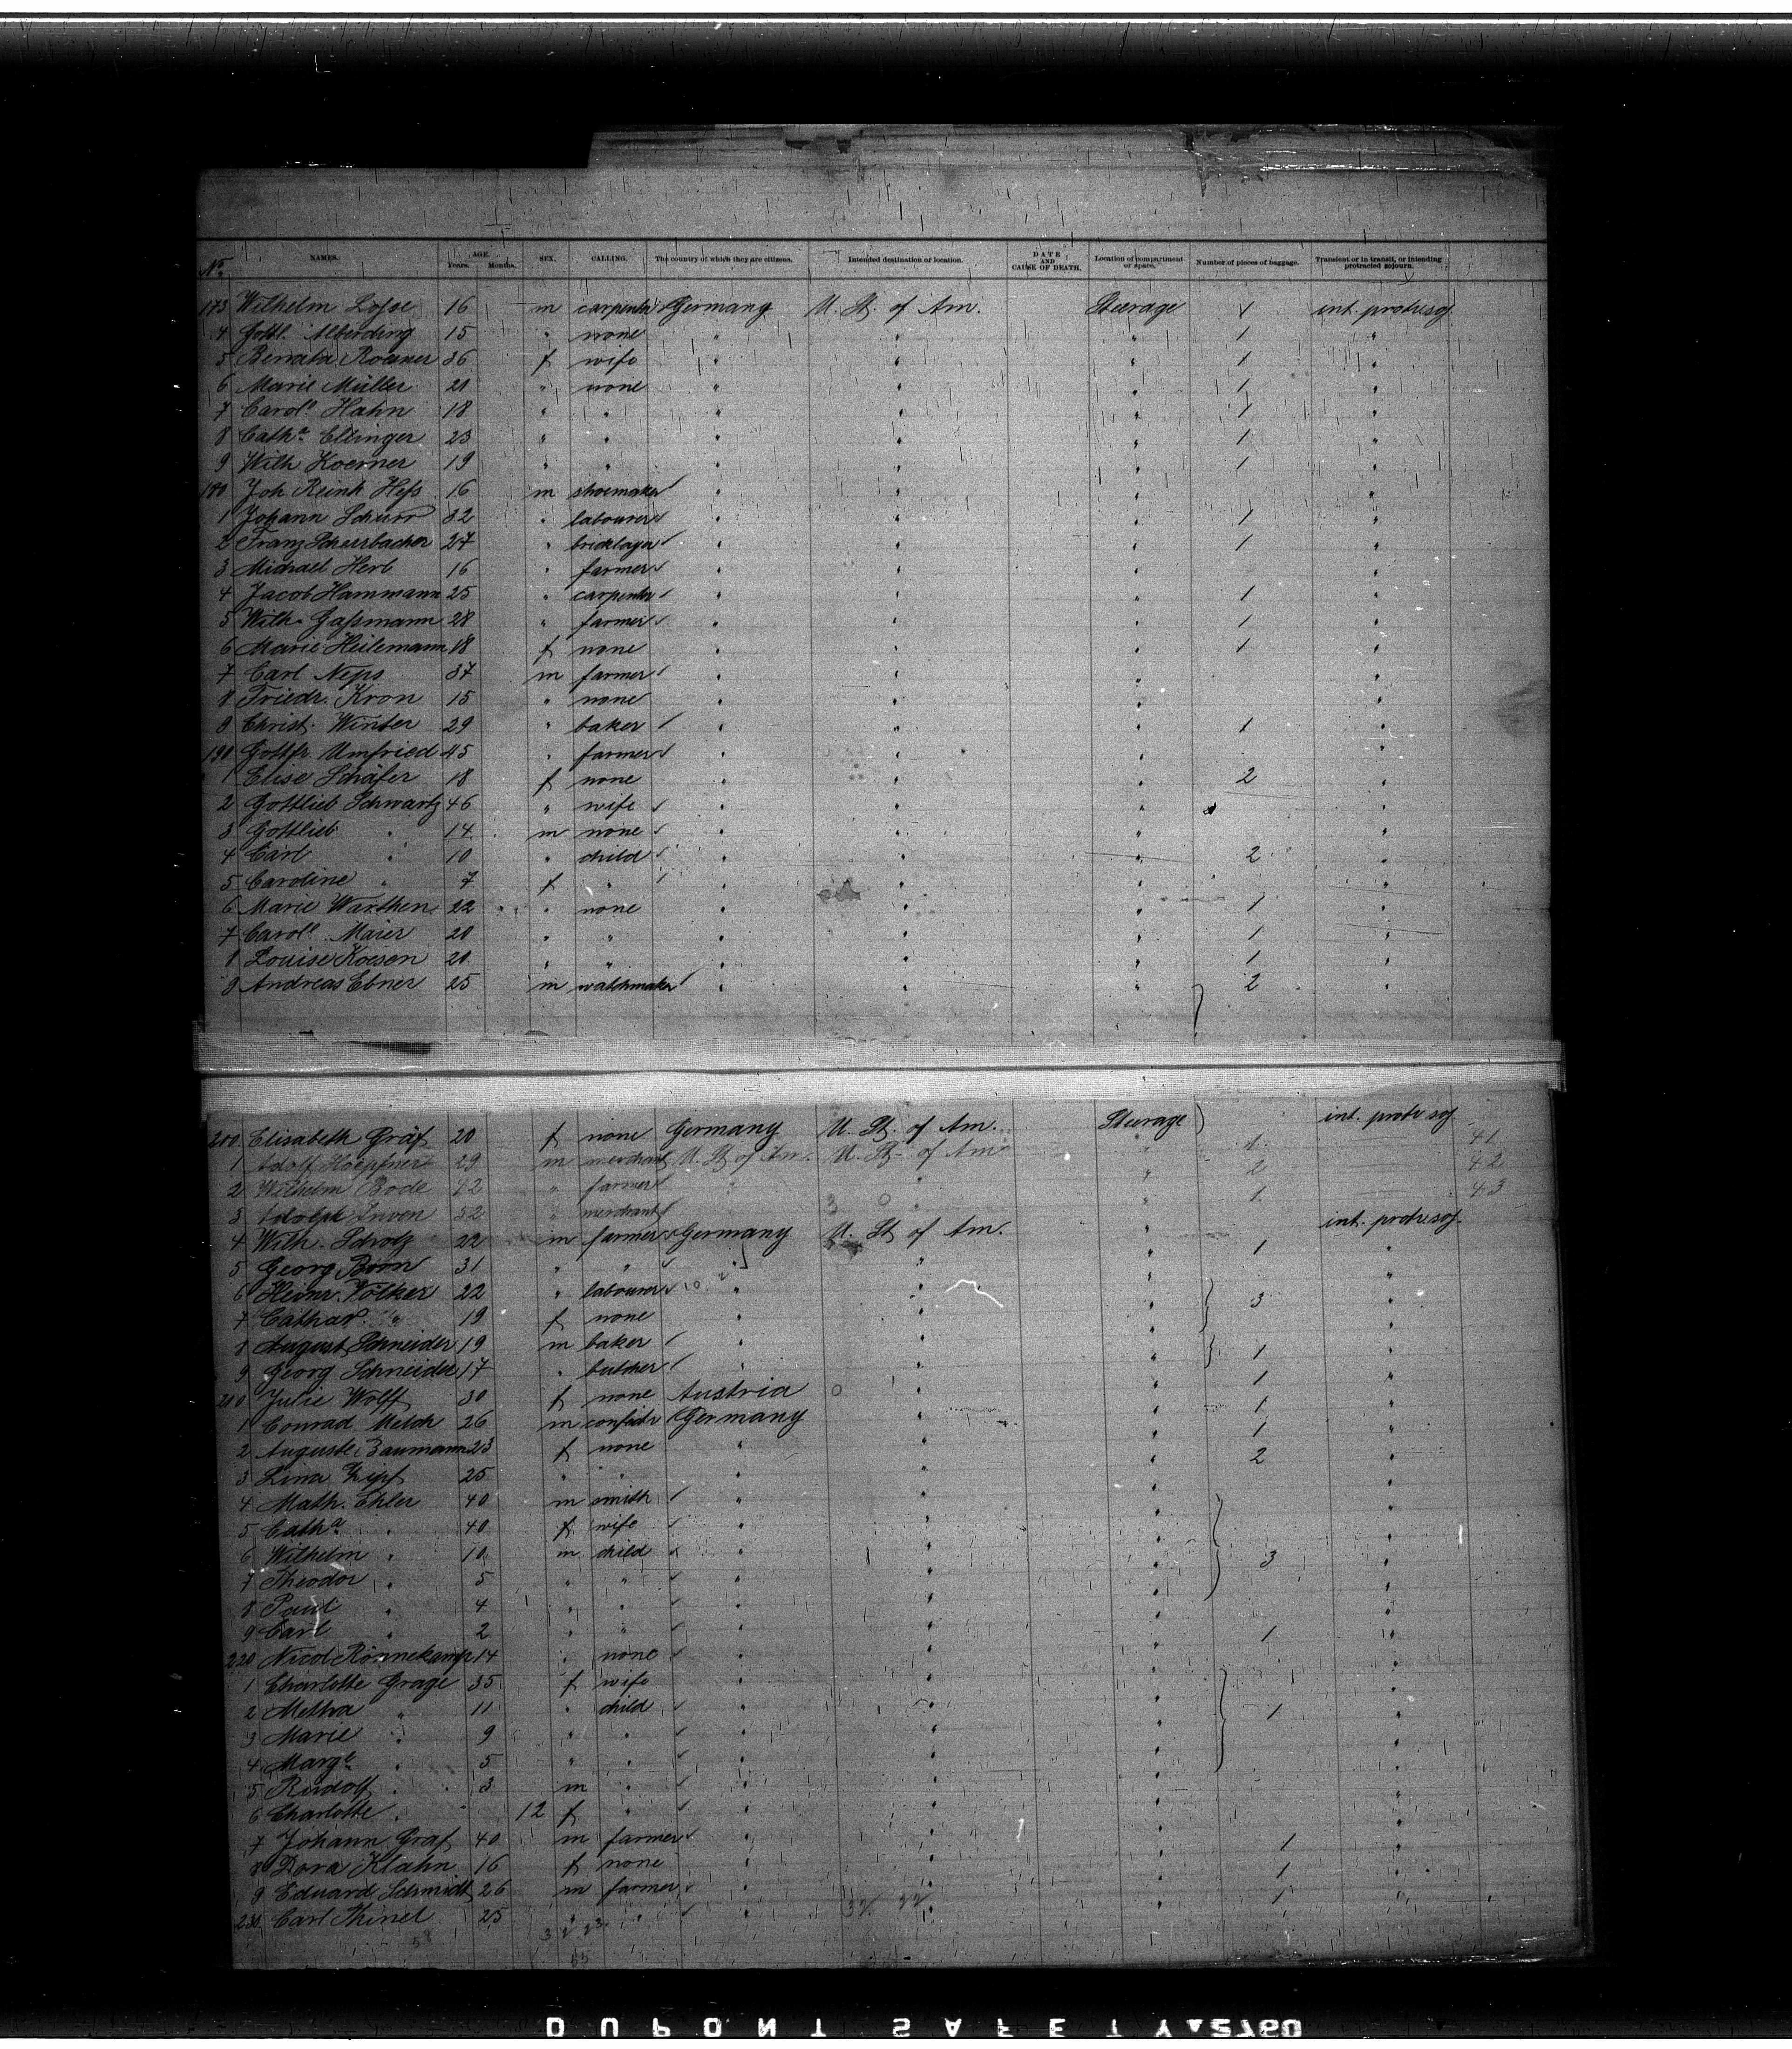 No. NAMES. AGE. Years. Months. SEX. CALLING. The country of which they are citizens. Intended destination or location. DATE AND CAUSE OF DEATH. Location of compartment or space. Number of pieces of baggage. Transient or in transit, or intending protracted sojourn.
173 Wilhelm 16 m carpenter Germany U. St. of Am. Steerage 1 int. protr. soj.
4 Gottl. Alberding 15 " none " " " 1 "
5 Renata Roesner 36 f wife " " " 1 "
6 Marie Müller 21 " none " " " 1 "
7 Carole Hahn 18 " " " " " 1 "
8 Catha Ellinger 23 " " " " " 1 "
9 Wilh Koerner 19 " " " " " 1 "
180 Joh Reinh Heß 16 m shoemaker " " " "
1 Johann Schurr 32 " labourer " " " 1 "
2 Franz Scheurbacher 27 " bricklayer " " " 1 "
3 Michael Herb 16 " farmer " " " "
4 Jacob Hammann 25 " carpenter " " " 1 "
5 Wilh. Gaßmann 28 " farmer " " " 1 "
6 Marie Heilemann 18 f none " " " 1 "
7 Carl 37 m farmer " " " "
8 Friedr. Kron 15 " none " " " "
9 Christ. Winter 29 " baker " " " 1 "
190 Gottfr Umfried 45 " farmer " " " "
1 Elise Schäfer 18 f none " " " 2 "
2 Gottlieb Schwartz 46 " wife " " " "
3 Gottlieb " 14 m none " " " "
4 Carl " 10 " child " " " 2 "
5 Caroline " 7 f " " " " "
6 Marie Warthen 22 " none " " " 1 "
7 Carole Maier 20 " " " " " 1 "
8 Louise Koesen 20 " " " " " 1 "
9 Andreas Ebner 25 m watchmaker " " " 2 "
200 Elisabeth Gräf 20 f none Germany U. St. of Am. Steerage int. protr soj
1 Adolf Hoepfner 29 m merchant U. St of Am. U. St. of Am " 1 41
2 Wilhelm Bode 42 " farmer " " " 2 42
3 Adolph 52 " merchant 3 0 " " 1 43
4 Wilh. Scholz 22 m farmer Germany U. St of Am. " int. protr. soj.
5 Georg Bonn 31 " " " " " 1 "
6 Heinr. Völker 22 " labourer 10 " " " "
7 Cathar. " 19 f none " " " 3 "
8 August Schneider 19 m baker " " " "
9 Georg Schneider 17 " butcher " " " 1 "
210 Julie Wolff 30 f none Austria 0 " " 1 "
1 Conrad Melch 26 m Germany " " 1 "
2 Auguste Baumann 23 f none " " " 1 "
3 Lina Zipf 25 " " " " " 2 "
4 Math. Ehler 40 m smith " " " "
5 Catha " 40 f wife " " " "
6 Wilhelm " 10 m child " " " "
7 Theodor " 5 " " " " " 3 "
8 Paul " 4 " " " " " "
9 Carl " 2 " " " " " "
220 Nicol Rönnekamp 14 " none " " " 1 "
1 Charlotte Grage 35 f wife " " " "
2 Metha " 11 " child " " " "
3 Marie " 9 " " " " " 1 "
4 Marge " 5 " " " " " "
5 Rudolf " 3 m " " " " "
6 Charlotte " 12 f " " " " "
7 Johann Graf 40 m farmer " " " "
8 Dora Klahn 16 f none " " " 1 "
9 Eduard Schmidt 26 m farmer " " " 1 "
230 Carl Thinel 25 " " " " " 1 "
58
55
DUPONT SAFETY 2760